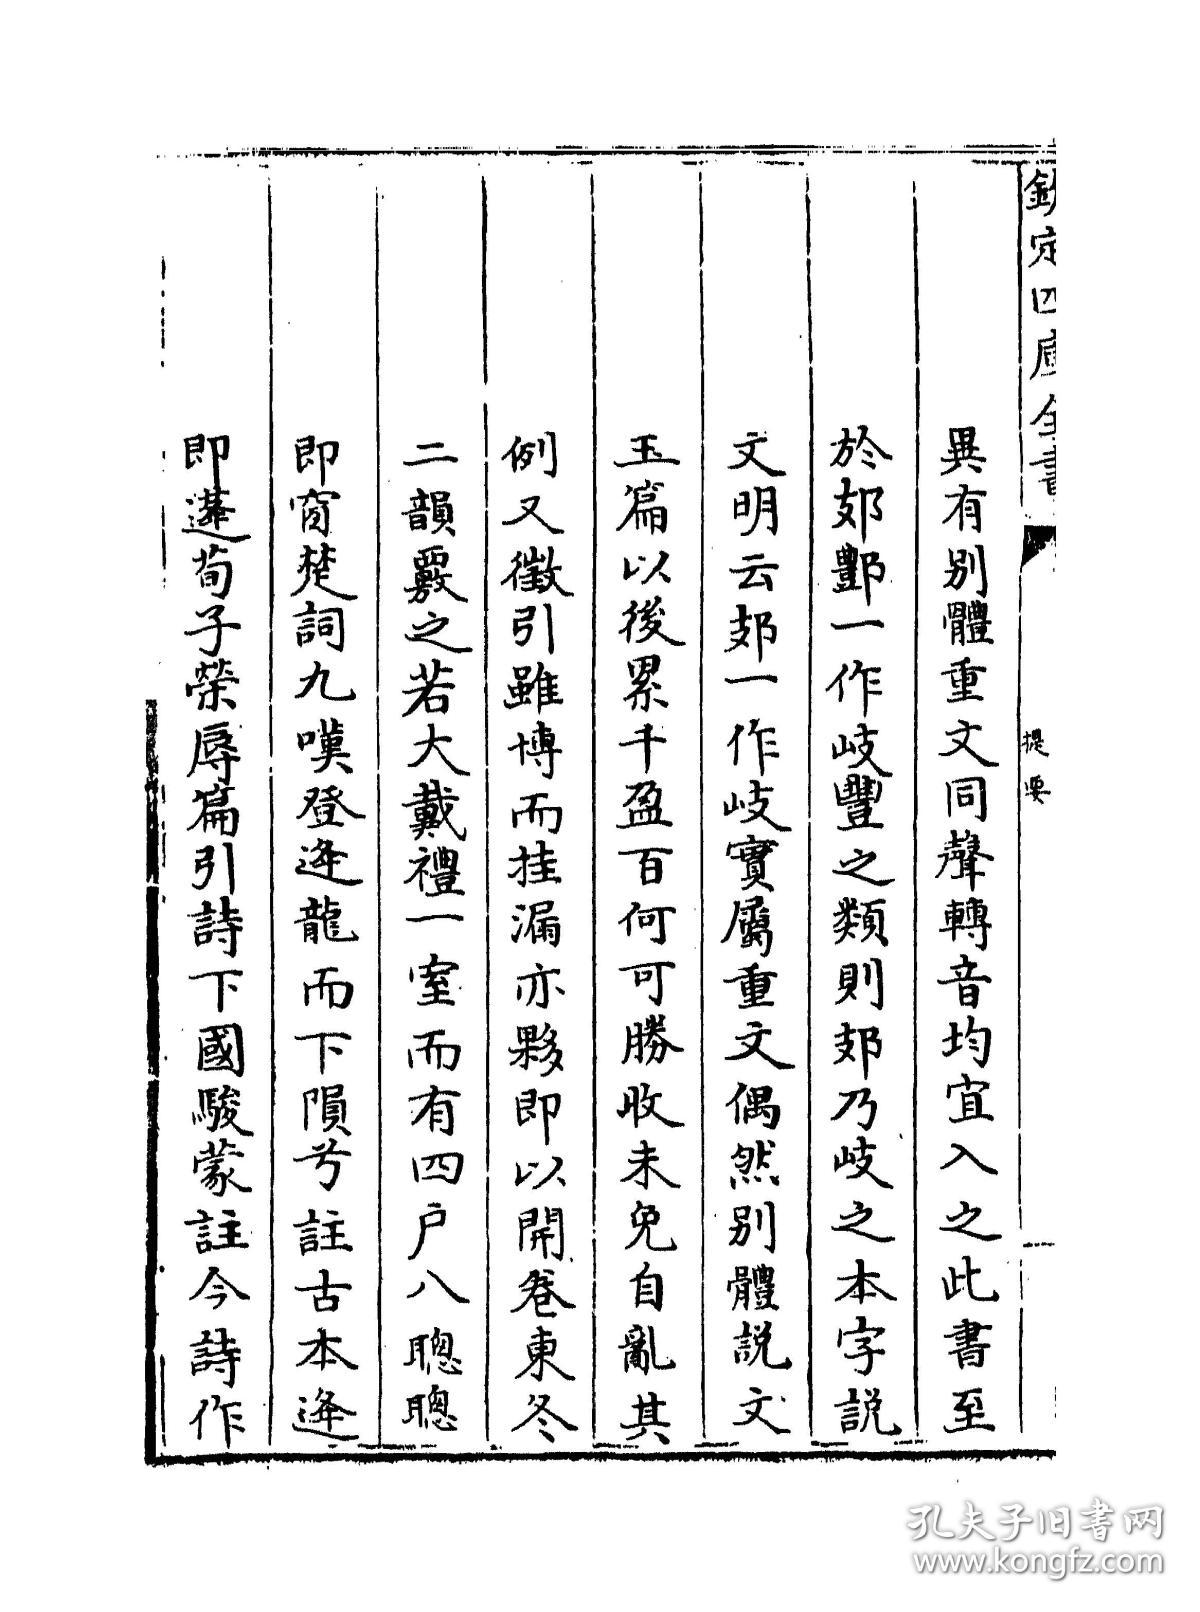 欽定四庫全書
提要
異有别體重文同聲轉音均宜入之此書至
於郊酆一作岐豐之類則郊乃岐之本字說
文明云郊一作岐實屬重文偶然别體說文
玉篇以後累千盈百何可勝收未免自亂其
例又徵引雖博而挂漏亦夥即以開卷東冬
二韻覈之若大戴禮一室而有四户八聰聰
即窗楚詞九嘆登逄龍而下隕兮註古本逄
即蓬荀子榮辱篇引詩下國駿蒙註今詩作
孔夫子旧书网
www.kongfz.com